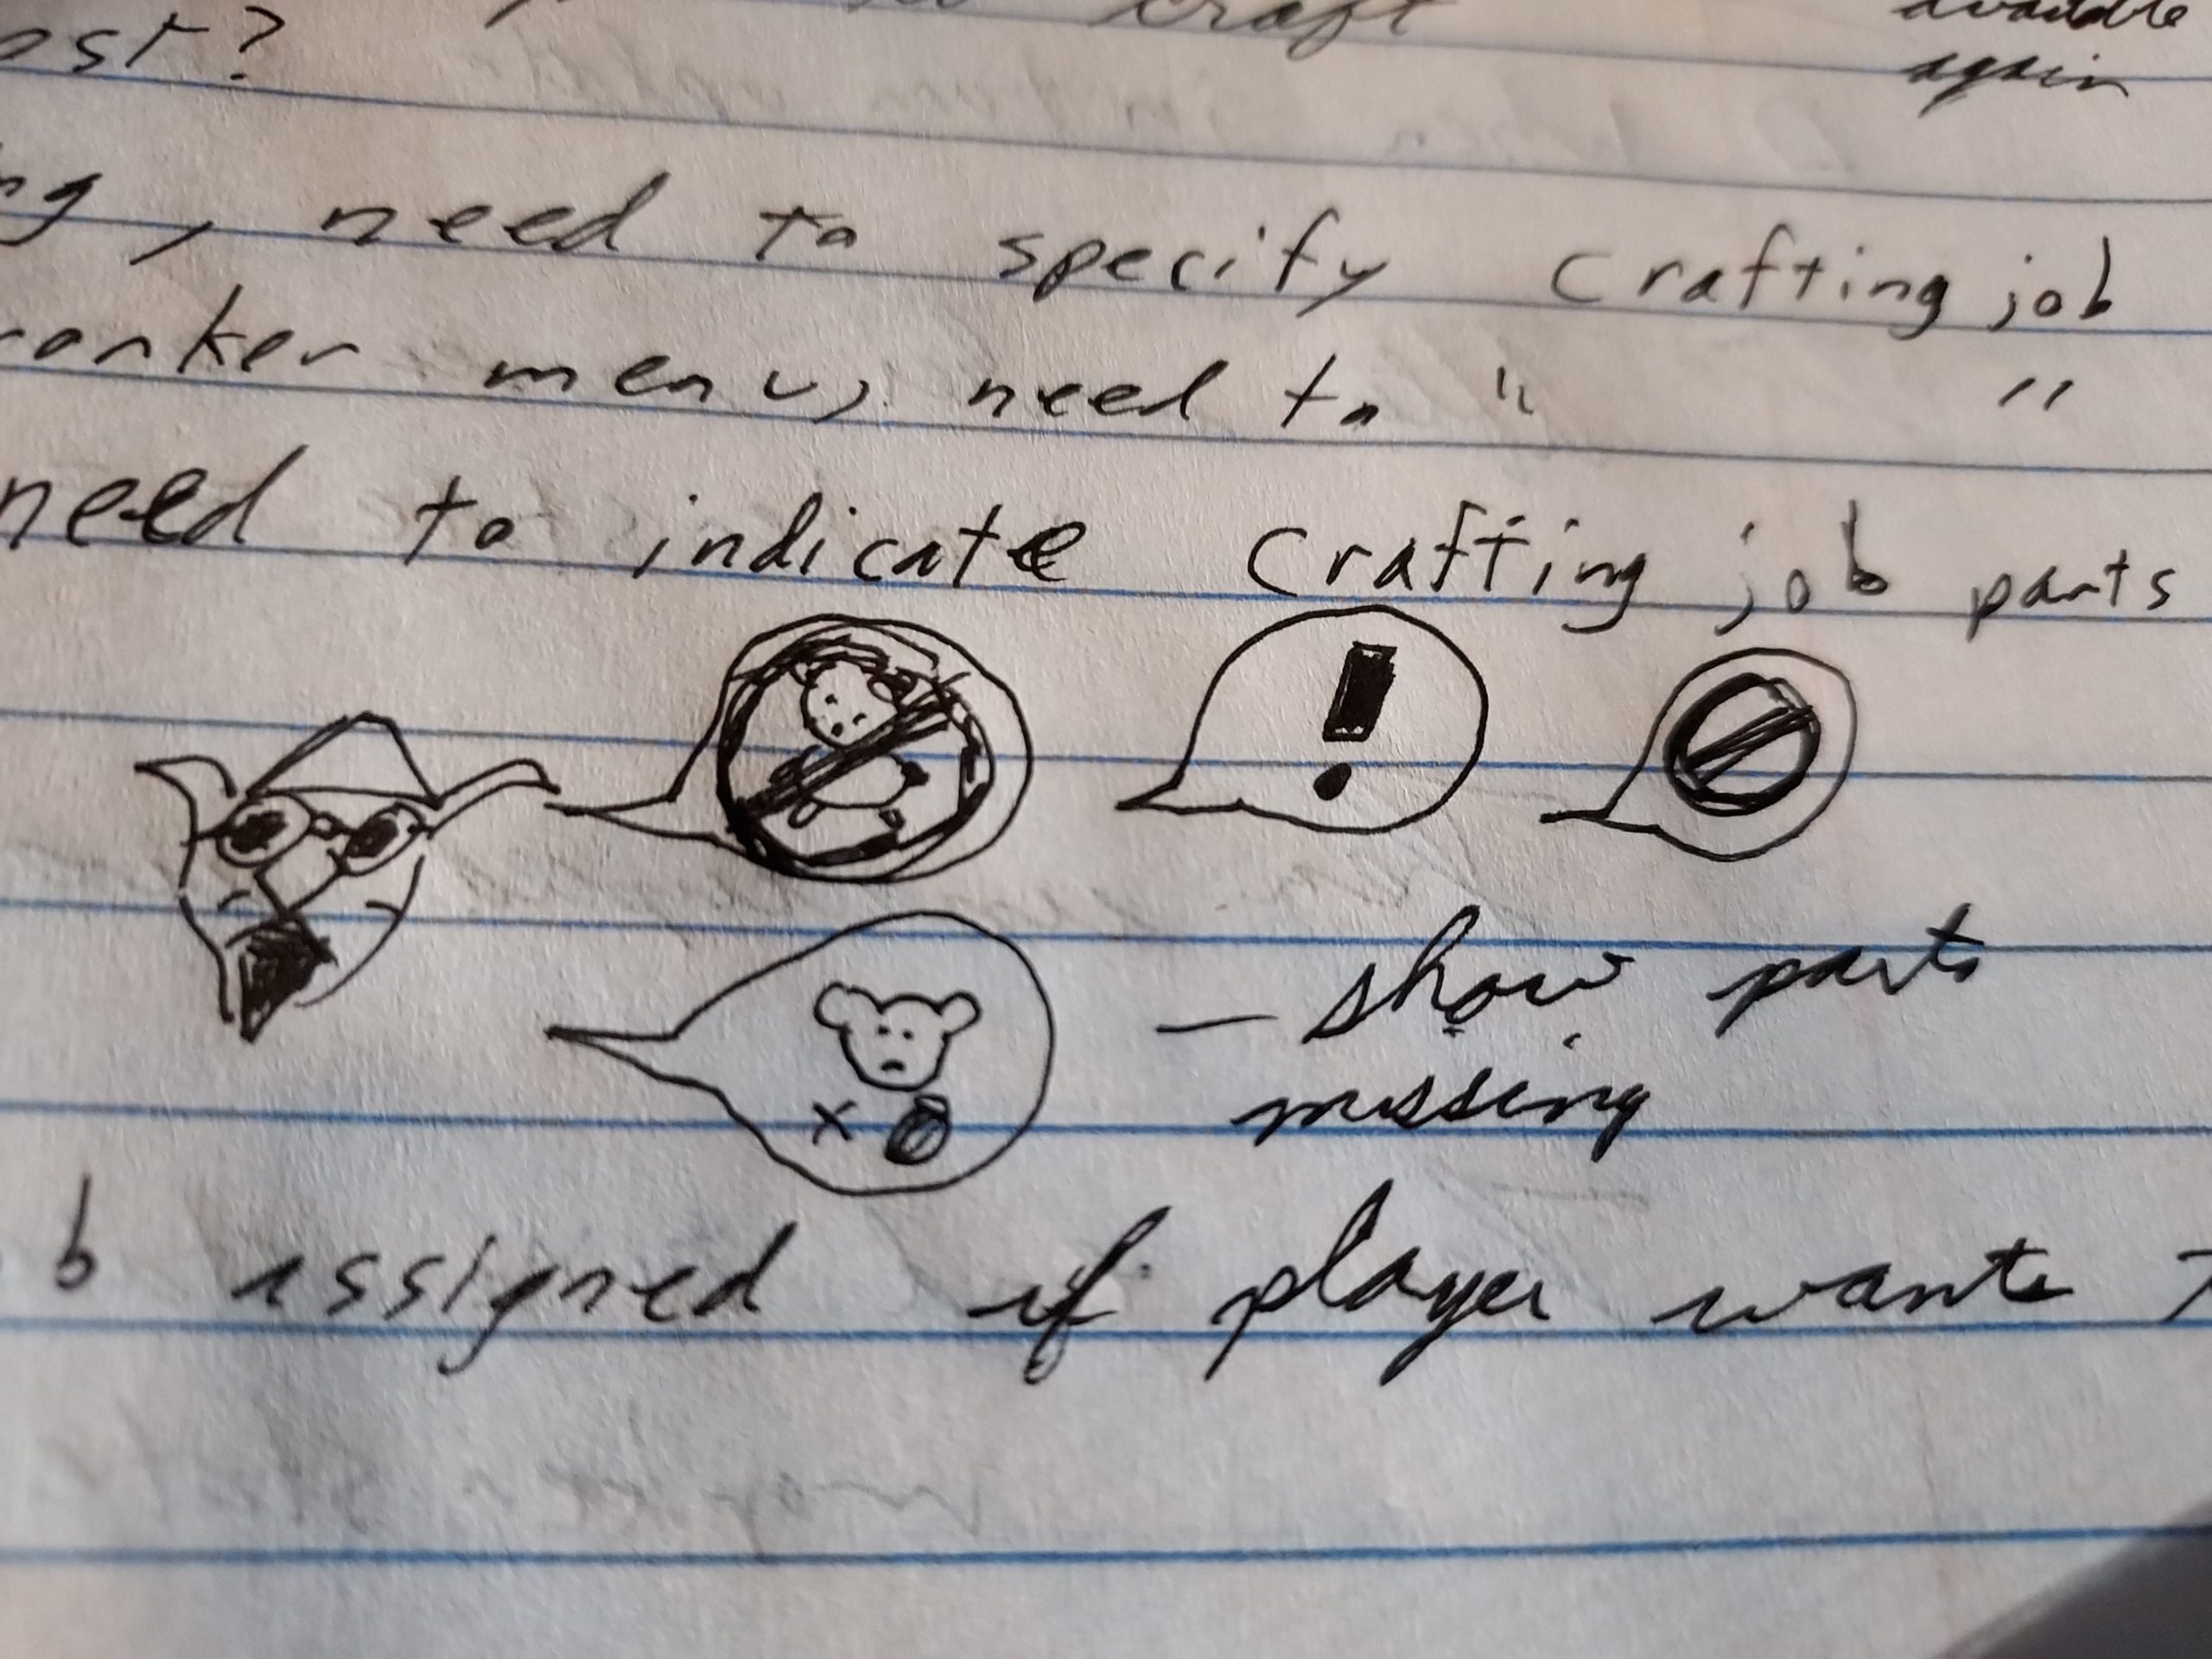 ost? craft
available
again
ng, need to specify crafting job
menu, need to " "
need to indicate crafting job parts
!
- show parts
missing
x
b assigned if player wants